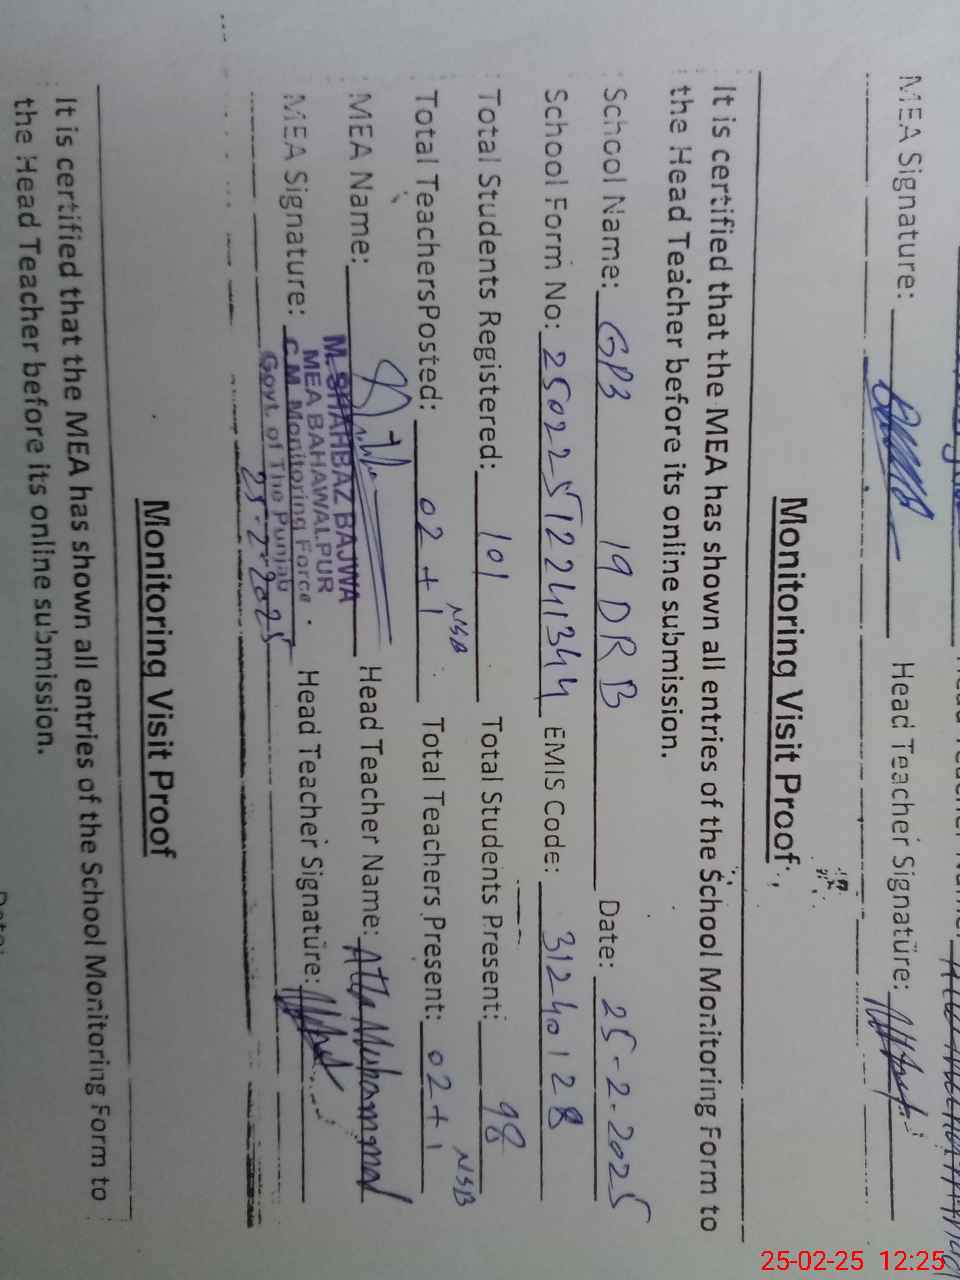 MEA Signature: Head Teacher Signature:
Monitoring Visit Proof
It is certified that the MEA has shown all entries of the School Monitoring Form to
the Head Teacher before its online submission.
School Name: GPS 19 DRB Date: 25-2-2025
School Form No: 25022512241344 EMIS Code: 31240128
Total Students Registered: 101 Total Students Present: 98
Total TeachersPosted: 02+1 NSB Total Teachers Present: 02+1 NSB
MEA Name: Head Teacher Name: Atta Muhammad
M. SHAHBAZ BAJWA
MEA BAHAWALPUR
C.M Monitoring Force
Govt. of The Punjab
MEA Signature: Head Teacher Signature:
25-2-2025
Monitoring Visit Proof
It is certified that the MEA has shown all entries of the School Monitoring Form to
the Head Teacher before its online submission.
25-02-25 12:25